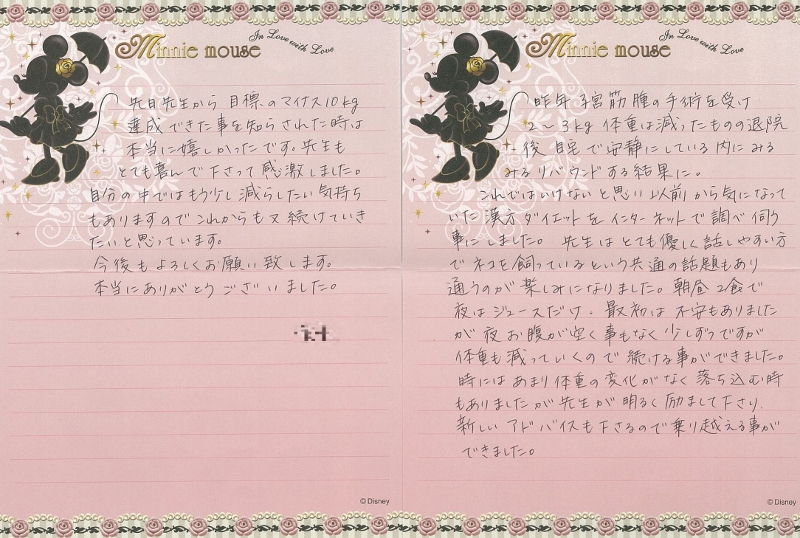 Minnie mouse
In Love with Love
先日先生から目標のマイナス10kg
達成できた事を知らされた時は
本当に嬉しかったです。先生も
とても喜んで下さって感激しました。
自分の中ではもう少し減らしたい気持ち
もありますのでこれからも又続けていき
たいと思っています。
今後もよろしくお願い致します。
本当にありがとうございました。
© Disney
Minnie mouse
In Love with Love
昨年子宮筋腫の手術を受け
2〜3kg体重は減ったものの退院
後自宅で安静にしている内にみる
みるリバウンドする結果に。
これではいけないと思い以前から気になって
いた漢方ダイエットをインターネットで調べ伺う
事にしました。先生はとても優しく話しやすい方
でネコを飼っているという共通の話題もあり
通うのが楽しみになりました。朝昼2食で
夜はジュースだけ、最初は不安もありました
が夜お腹が空く事もなく少しずつですが
体重も減っていくので続ける事ができました。
時にはあまり体重の変化がなく落ち込む時
もありましたが先生が明るく励まして下さり、
新しいアドバイスも下さるので乗り越える事が
できました。
© Disney